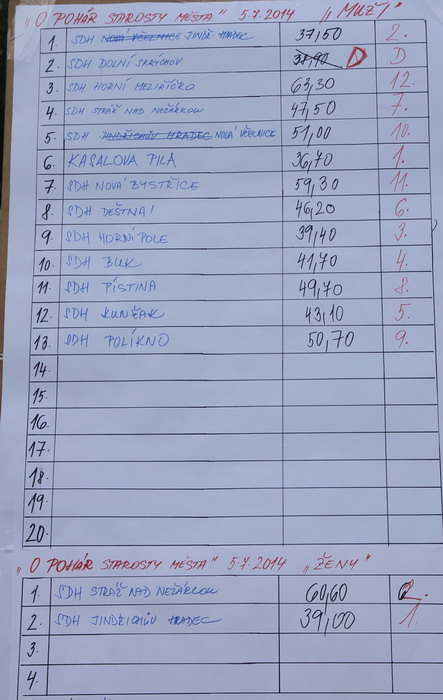 "O POHÁR STAROSTY MĚSTA" 5.7.2014 "MUŽI"
1. SDH NOVÁ VČELNICE JINDŘ. HRADEC 37,50 2.
2. SDH DOLNÍ SKRÝCHOV 38,90 D D
3. SDH HORNÍ MEZIŘÍČKO 63,30 12.
4. SDH STRÁŽ NAD NEŽÁRKOU 47,50 7.
5. SDH JINDŘICHŮV HRADEC NOVÁ VČELNICE 51,00 10.
6. KASALOVA PILA 36,70 1.
7. SDH NOVÁ BYSTŘICE 59,30 11.
8. SDH DEŠTNÁ 46,20 6.
9. SDH HORNÍ POLE 39,40 3.
10. SDH BUK 41,70 4.
11. SDH PÍSTINA 49,70 8.
12. SDH KUNŽAK 43,10 5.
13. SDH POLÍKNO 50,70 9.
14.
15.
16.
17.
18.
19.
20.
"O POHÁR STAROSTY MĚSTA" 5.7.2014 "ŽENY"
1. SDH STRÁŽ NAD NEŽÁRKOU 60,60 2.
2. SDH JINDŘICHŮV HRADEC 39,00 1.
3.
4.